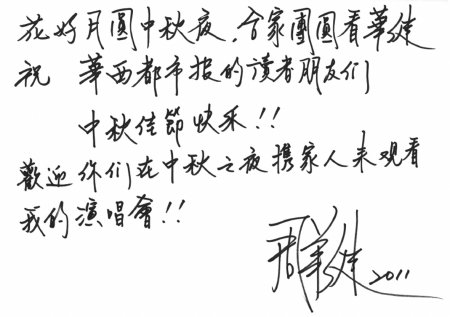 花好月圓中秋夜，合家團圓看華健
祝 華西都市报的读者朋友们
中秋佳節快乐！！
歡迎你们在中秋之夜携家人来观看
我的演唱會！！
周華健 2011